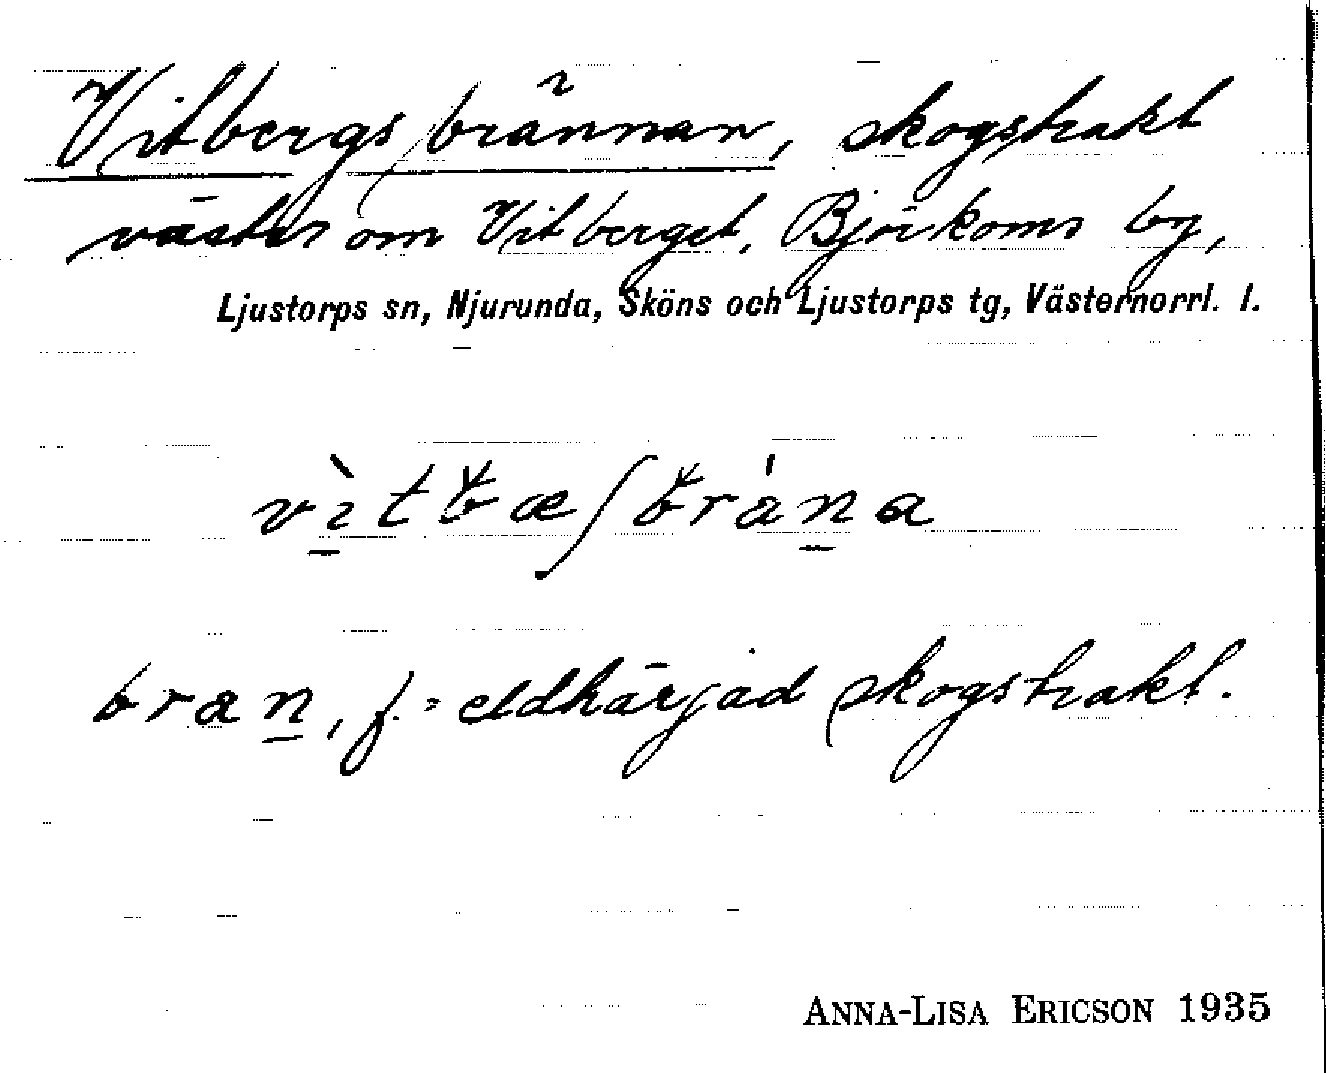 Vitbergsbrännan, skogstrakt
väster om Vitberget, Björkoms by,
Ljustorps sn, Njurunda, Sköns och Ljustorps tg, Västernorrl. l.
vìtbæʃbrána
bran, f. = eldhärjad skogstrakt.
ANNA-LISA ERICSON 1935